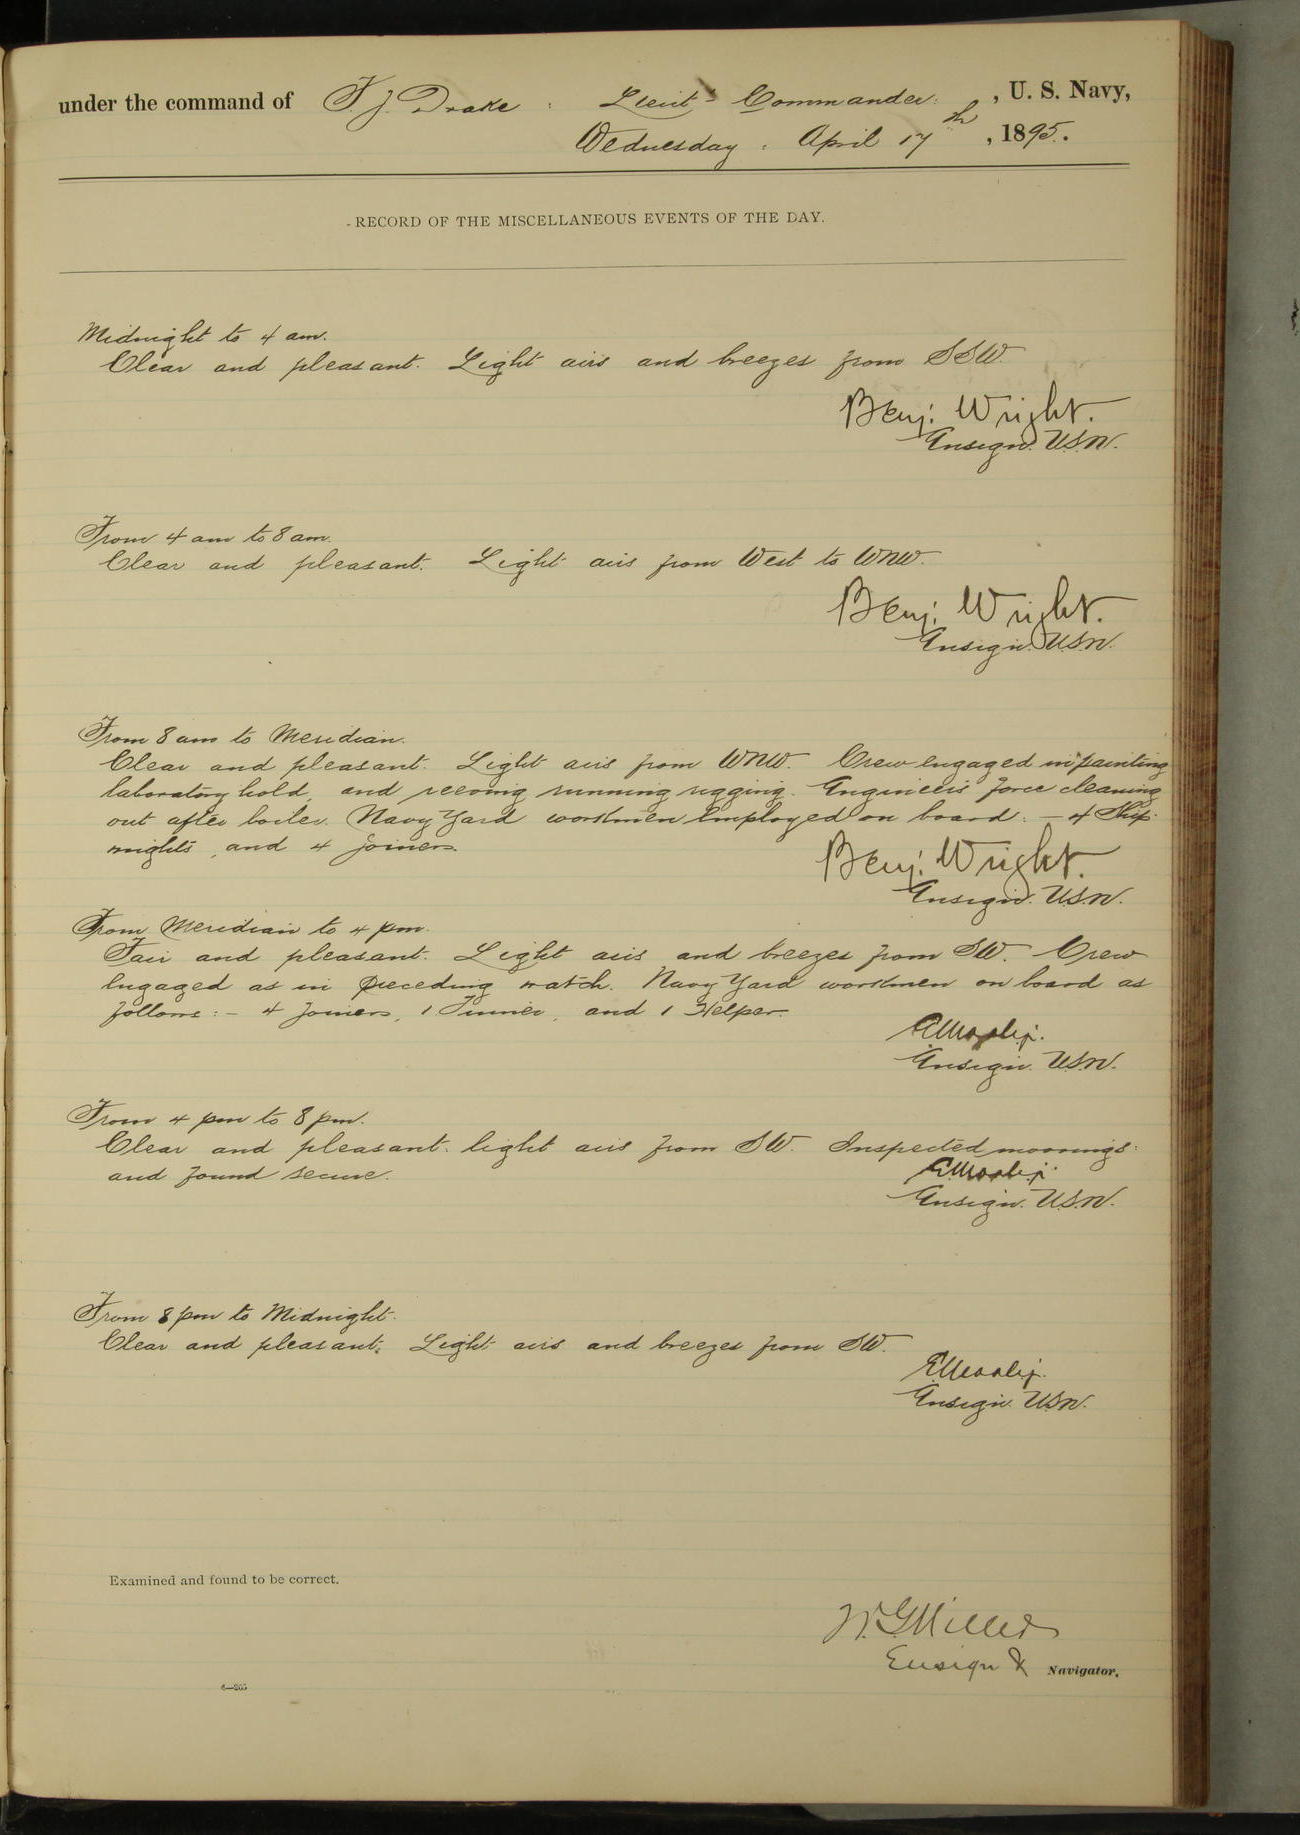 under the command of F J. Drake, Lieut - Commander, U. S. Navy,
Wednesday, April 17th, 1895.
RECORD OF THE MISCELLANEOUS EVENTS OF THE DAY.
Midnight to 4 am.
Clear and pleasant. Light airs and breezes from SSW.
Benj. Wright.
Ensign. U.S.N.
From 4 am to 8 am.
Clear and pleasant. Light airs from West to WNW.
Benj. Wright.
Ensign. U.S.N.
From 8 am to Meridian.
Clear and pleasant. Light airs from WNW. Crew engaged in painting
laboratory hold, and reeving running rigging. Engineers' force cleaning
out after boiler. Navy Yard workmen employed on board: - 4 Ship-
wrights, and 4 Joiners.
Benj. Wright.
Ensign. U.S.N.
From Meridian to 4 pm.
Fair and pleasant. Light airs and breezes from SW. Crew
engaged as in preceding watch. Navy Yard workmen on board as
follows: - 4 Joiners, 1 Tinner, and 1 Helper.
Ensign. U.S.N.
From 4 pm to 8 pm.
Clear and pleasant. light airs from SW. Inspected moorings:
and found secure.
Ensign. U.S.N.
From 8 pm to Midnight.
Clear and pleasant. Light airs and breezes from SW.
Ensign. U.S.N.
Examined and found to be correct.
W.G. Miller
Ensign & Navigator.
6—205